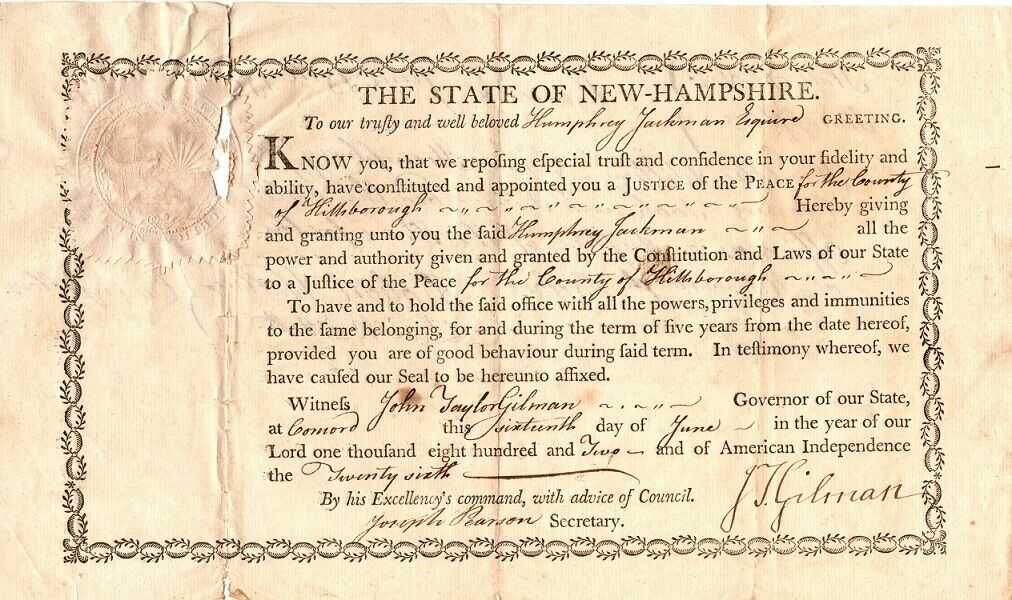 THE STATE OF NEW-HAMPSHIRE.
To our truſty and well beloved Humphrey Jackman Esquire GREETING.
KNOW you, that we repoſing eſpecial truſt and confidence in your fidelity and
ability, have conſtituted and appointed you a JUSTICE of the PEACE for the County
of Hillsborough ~ " ~ " ~ " ~ " ~ " ~ " ~ " ~ Hereby giving
and granting unto you the ſaid Humphrey Jackman ~ " ~ all the
power and authority given and granted by the Conſtitution and Laws of our State
to a Juſtice of the Peace for the County of Hillsborough ~ " ~ " ~
To have and to hold the ſaid office with all the powers, privileges and immunities
to the ſame belonging, for and during the term of five years from the date hereof,
provided you are of good behaviour during ſaid term. In teſtimony whereof, we
have cauſed our Seal to be hereunto affixed.
Witneſs John Taylor Gilman ~ " ~ " ~ Governor of our State,
at Concord this sixteenth day of June ~ in the year of our
Lord one thouſand eight hundred and Two ~ and of American Independence
the Twenty sixth
By his Excellency's command, with advice of Council.
Joseph Pearson Secretary.
J T Gilman